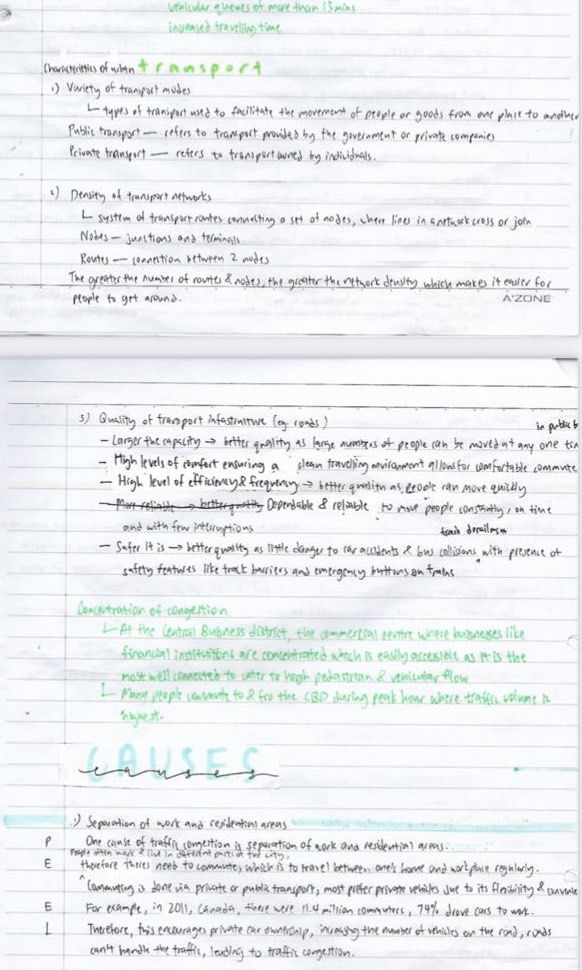 vehicular queues of more than 15mins
increased travelling time
Characteristics of urban transport
1) Variety of transport modes
types of transport used to facilitate the movement of people or goods from one place to another
Public transport — refers to transport provided by the government or private companies
Private transport — refers to transport owned by individuals.
2) Density of transport networks
system of transport routes connecting a set of nodes, where lines in a network cross or join
Nodes — junctions and terminals
Routes — connection between 2 nodes
The greater the number of routes & nodes, the greater the network density which makes it easier for
people to get around.
A'ZONE
3) Quality of transport infastraiture (eg. roads)
in public b
— Larger the capacity → better quality as large numbers of people can be moved at any one tim
— High levels of comfort ensuring a clean travelling environment allows for comfortable commute
— High level of efficiency & frequency → better quality as people can move quickly
— More reliable → better quality Dependable & reliable to move people constantly, on time
and with few interruptions
train derailments
— Safer it is → better quality as little danger to car accidents & bus collisions with presence of
safety features like track barriers and emergency buttons on trains
Concentration of congestion
At the Central Business district, the commercial centre where businesses like
financial institutions are concentrated which is easily accessible as it is the
most well connected to cater to high pedestrian & vehicular flow
Many people commute to & fro the CBD during peak hour where traffic volume is
highest.
CAUSES
causes
1) Separation of work and residential areas
P One cause of traffic congestion is separation of work and residential areas.
People often work & live in different parts of the city,
E therefore theres need to commute, which is to travel between one's home and workplace regularly.
Commuting is done via private or public transport, most prefer private vehicles due to its flexibility & convenie
E For example, in 2011, Canada, there were 11.4 million commuters, 74% drove cars to work.
L Therefore, this encourages private car ownership, increasing the number of vehicles on the road, roads
can't handle the traffic, leading to traffic congestion.